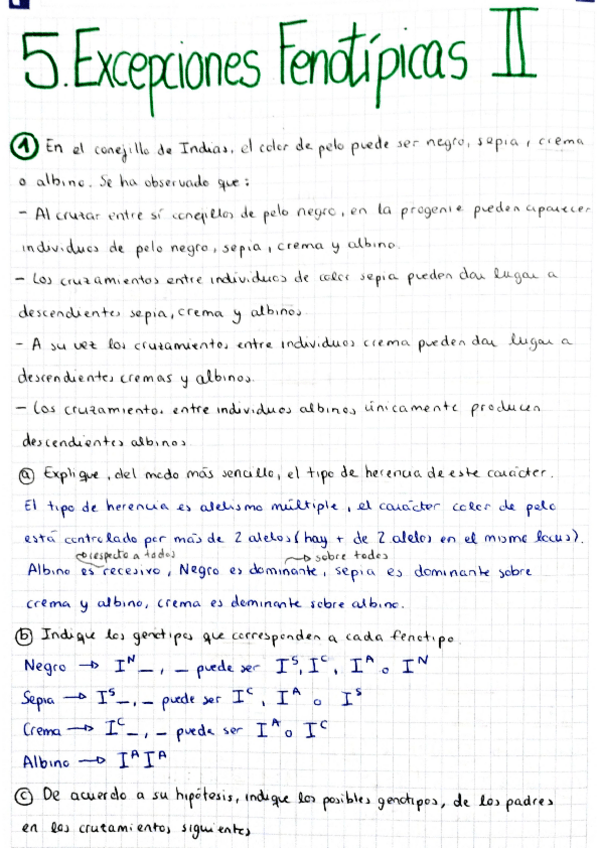 5. Excepciones Fenotípicas II
① En el conejillo de Indias, el color de pelo puede ser negro, sepia, crema
o albino. Se ha observado que:
- Al cruzar entre sí conejillos de pelo negro, en la progenie pueden aparecer
individuos de pelo negro, sepia, crema y albino.
- Los cruzamientos entre individuos de color sepia pueden dar lugar a
descendientes sepia, crema y albinos.
- A su vez los cruzamientos entre individuos crema pueden dar lugar a
descendientes cremas y albinos.
- Los cruzamientos entre individuos albinos únicamente producen
descendientes albinos
ⓐ Explique, del modo más sencillo, el tipo de herencia de este carácter.
El tipo de herencia es alelismo múltiple, el carácter color de pelo
está controlado por más de 2 alelos (hay + de 2 alelos en el mismo locus).
respecto a todos → sobre todos
Albino es recesivo, Negro es dominante, sepia es dominante sobre
crema y albino, crema es dominante sobre albino.
ⓑ Indique los genotipos que corresponden a cada fenotipo.
Negro → Iᴺ_, _ puede ser Iˢ, Iᶜ, Iᴬ o Iᴺ
Sepia → Iˢ_, _ puede ser Iᶜ, Iᴬ o Iˢ
Crema → Iᶜ_, _ puede ser Iᴬ o Iᶜ
Albino → IᴬIᴬ
ⓒ De acuerdo a su hipótesis, indique los posibles genotipos, de los padres
en los cruzamientos siguientes